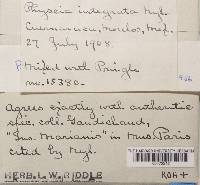 Physcia integrata Nyl.
Cuernavaca, Morelos, Mex.
27 July 1908.
Mixed with Pringle
no. 15380.
Agrees exactly with authentic
spec. coll. Gaudichaud,
"Ins. Marianis" in Mus. Paris
cited by Nyl.
HERB. L. W. RIDDLE
KOH+